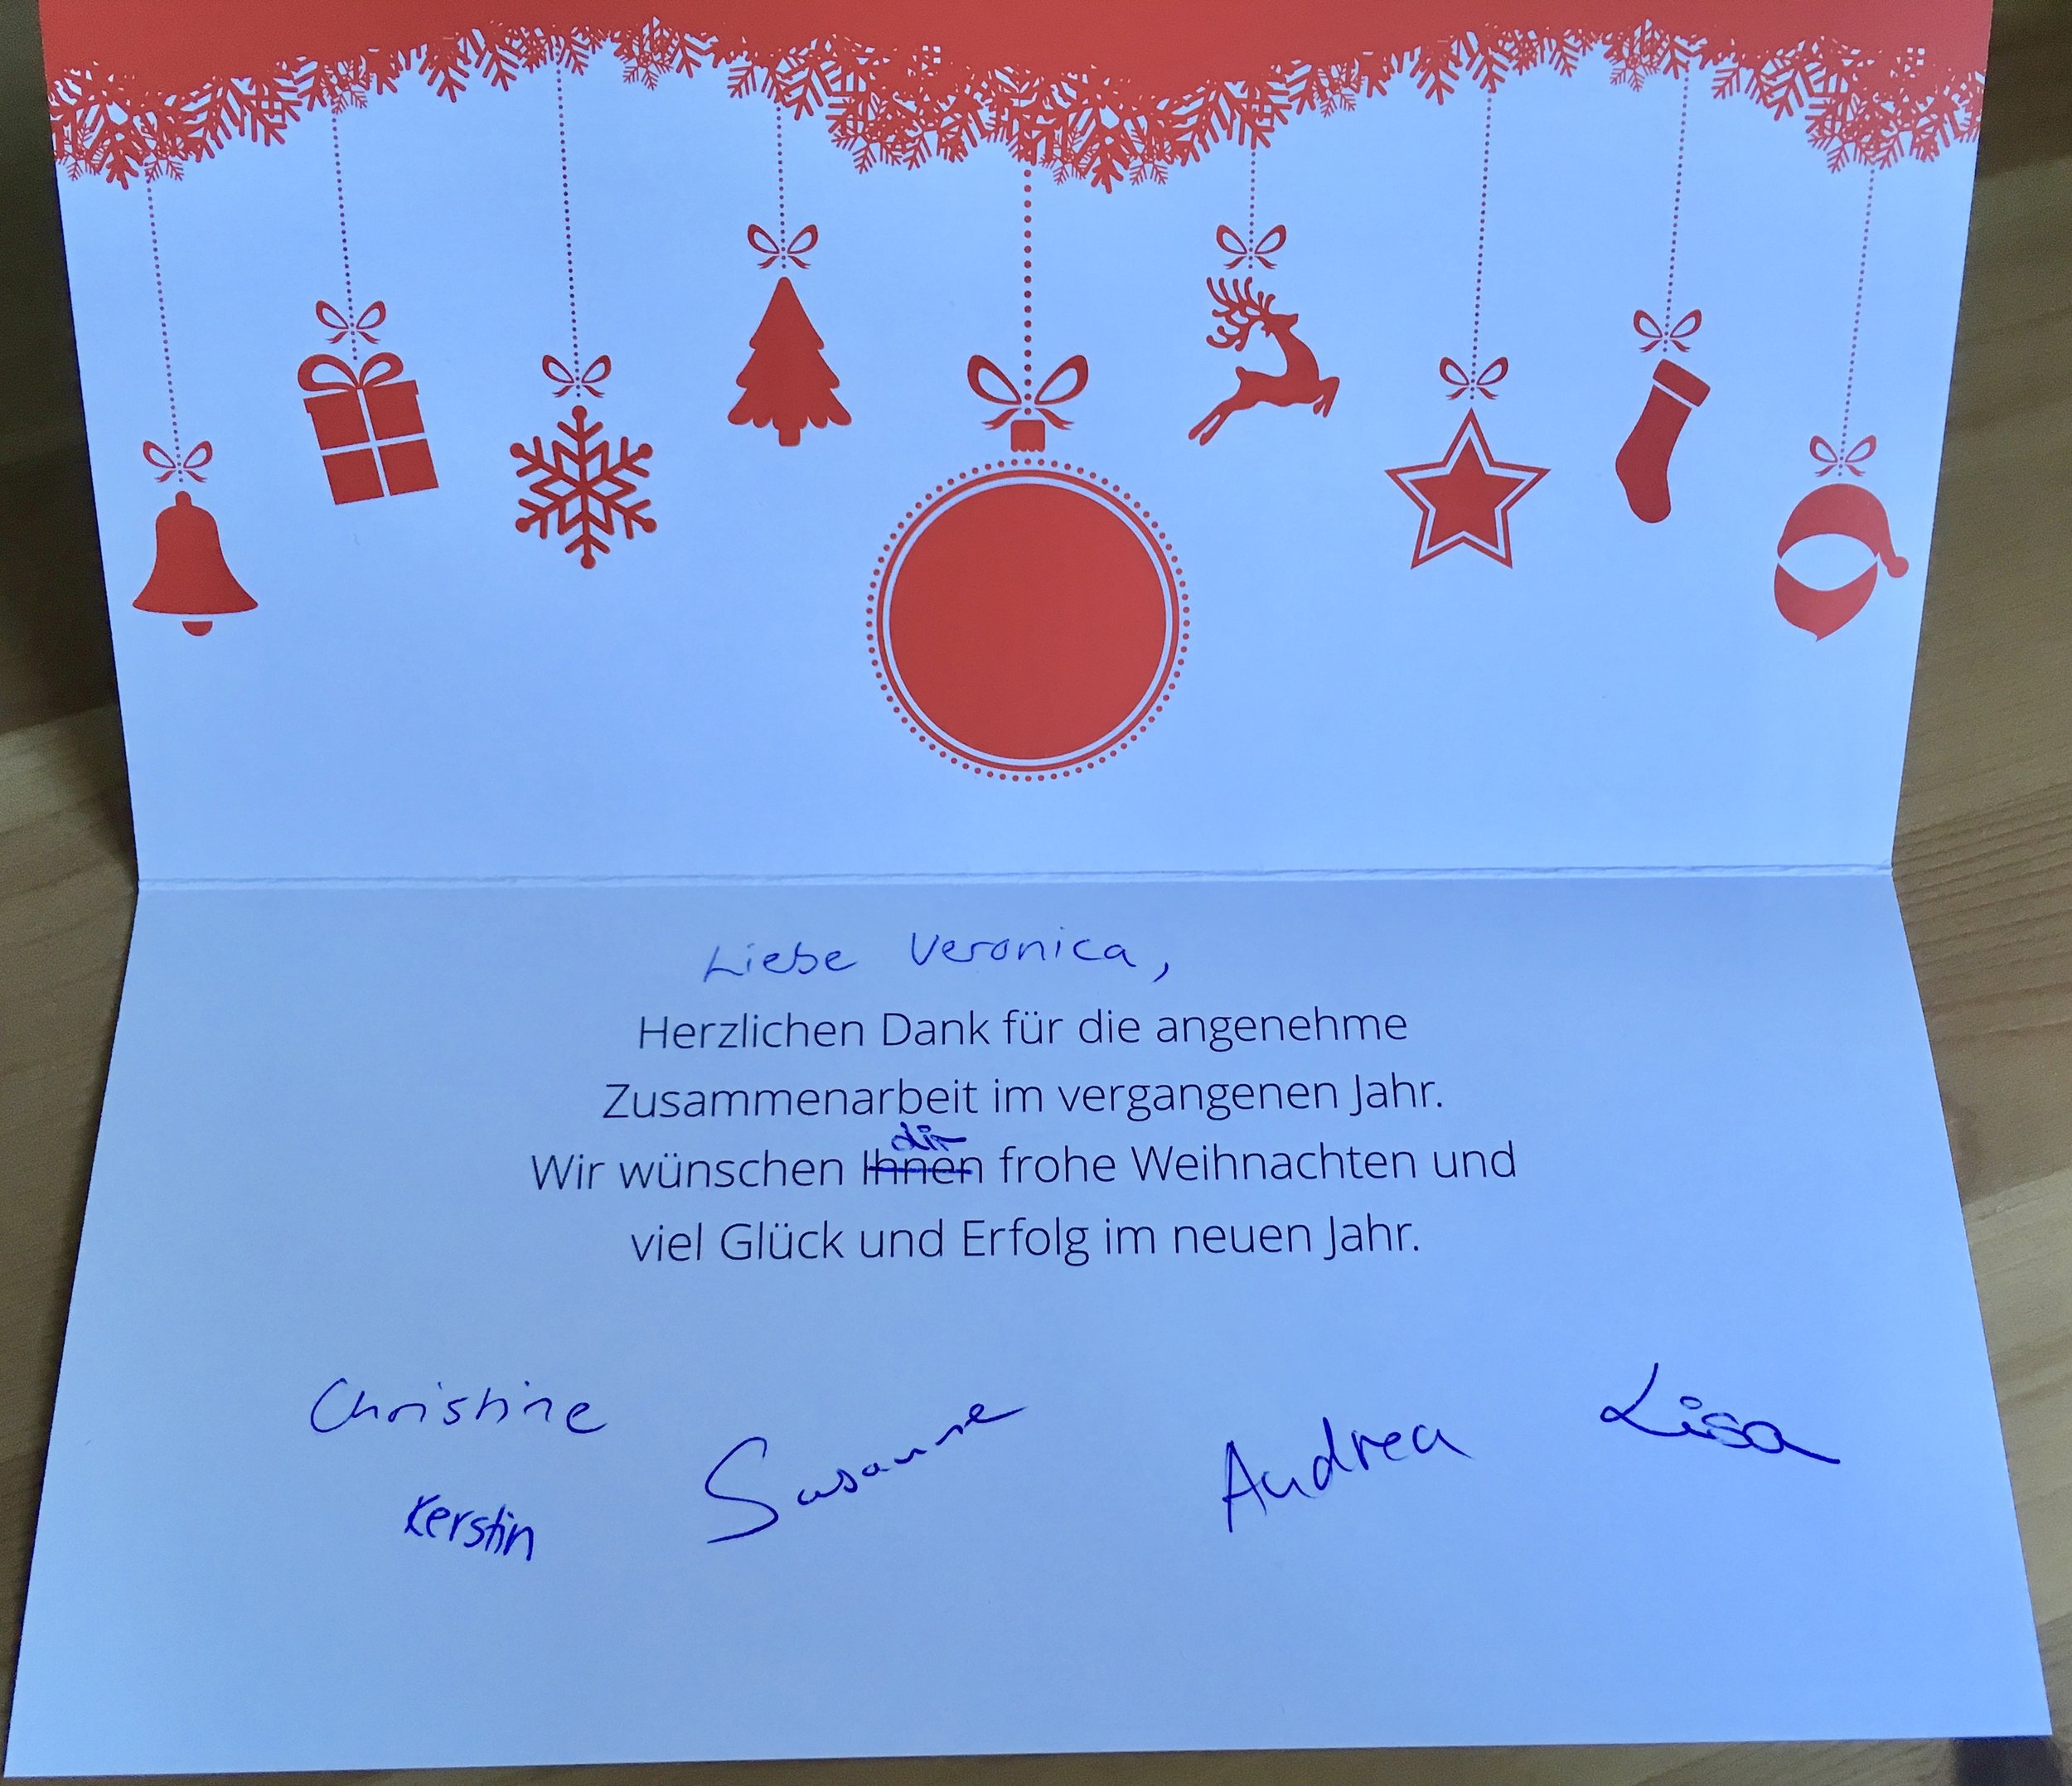 Liebe Veronica,
Herzlichen Dank für die angenehme
Zusammenarbeit im vergangenen Jahr.
dir
Wir wünschen Ihnen frohe Weihnachten und
viel Glück und Erfolg im neuen Jahr.
Christine
Susanne
Andrea
Lisa
Kerstin